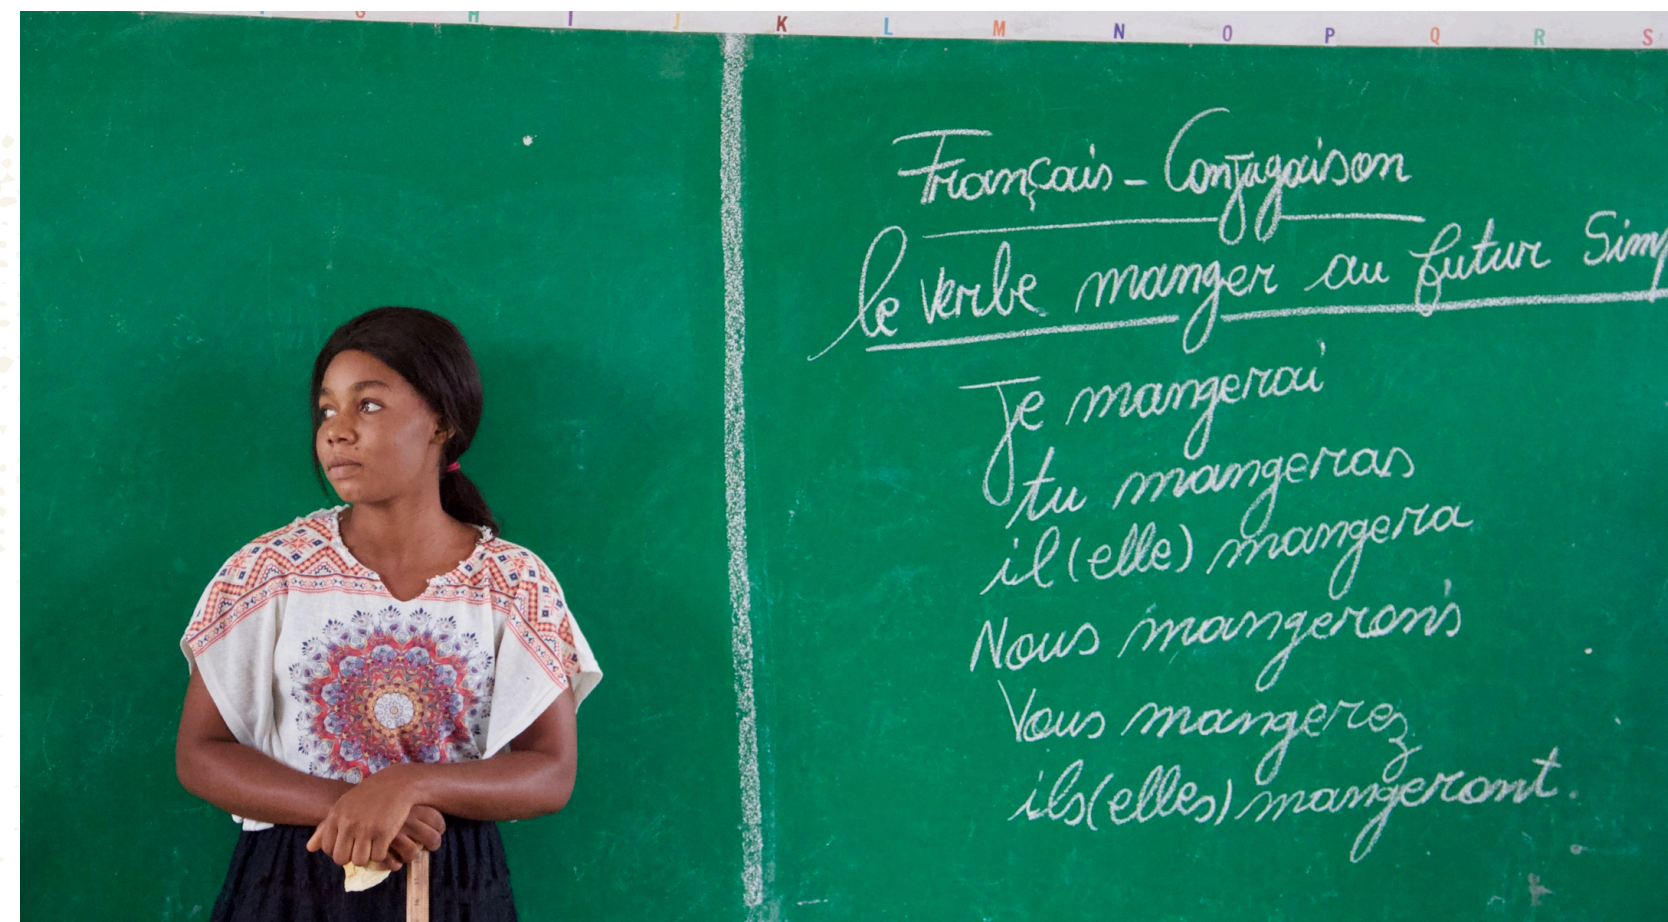 G H I J K L M N O P Q R S
Français - Conjugaison
le verbe manger au futur Simp
Je mangerai
tu mangeras
il (elle) mangera
Nous mangerons
Vous mangerez
ils (elles) mangeront.